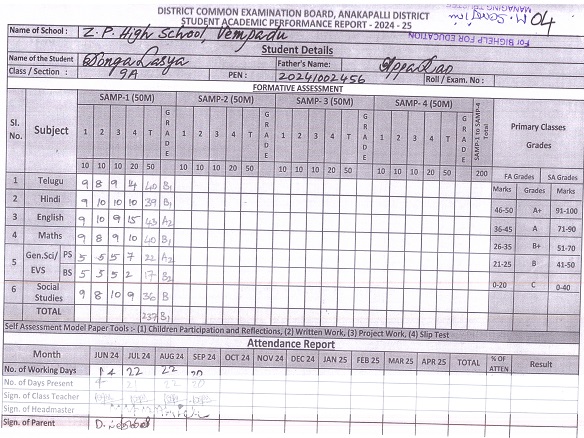 DISTRICT COMMON EXAMINATION BOARD, ANAKAPALLI DISTRICT
STUDENT ACADEMIC PERFORMANCE REPORT - 2024 - 25
04
For BIGHELP FOR EDUCATION
MANAGING
Name of School : Z.P. High School, Vempadu
Student Details
Name of the Student Father's Name:
Class / Section : 9A PEN : 20241002456 Roll / Exam. No :
FORMATIVE ASSESSMENT
Sl. No. Subject SAMP-1 (50M) SAMP-2 (50M) SAMP- 3 (50M) SAMP- 4 (50M) SAMP-1 to SAMP-4 Total Primary Classes Grades
1 2 3 4 T GRADE 1 2 3 4 T GRADE 1 2 3 4 T GRADE 1 2 3 4 T GRADE
10 10 10 20 50 10 10 10 20 50 10 10 10 20 50 10 10 10 20 50 200
FA Grades SA Grades
Marks Grades Marks
1 Telugu 9 8 9 14 40 B1
2 Hindi 9 10 10 10 39 B1
3 English 9 10 9 15 43 A2
4 Maths 9 8 9 10 40 B1
5 Gen.Sci/ EVS PS 5 5 5 7 22 A2
BS 5 5 5 2 17 B2
6 Social Studies 9 8 10 9 36 B
TOTAL 237 B1
46-50 A+ 91-100
36-45 A 71-90
26-35 B+ 51-70
21-25 B 41-50
0-20 C 0-40
Self Assessment Model Paper Tools :- (1) Children Participation and Reflections, (2) Written Work, (3) Project Work, (4) Slip Test
Attendance Report
Month JUN 24 JUL 24 AUG 24 SEP 24 OCT 24 NOV 24 DEC 24 JAN 25 FEB 25 MAR 25 APR 25 TOTAL % OF ATTEN Result
No. of Working Days 14 22 22 20
No. of Days Present 21 22 20
Sign. of Class Teacher
Sign. of Headmaster
Sign. of Parent